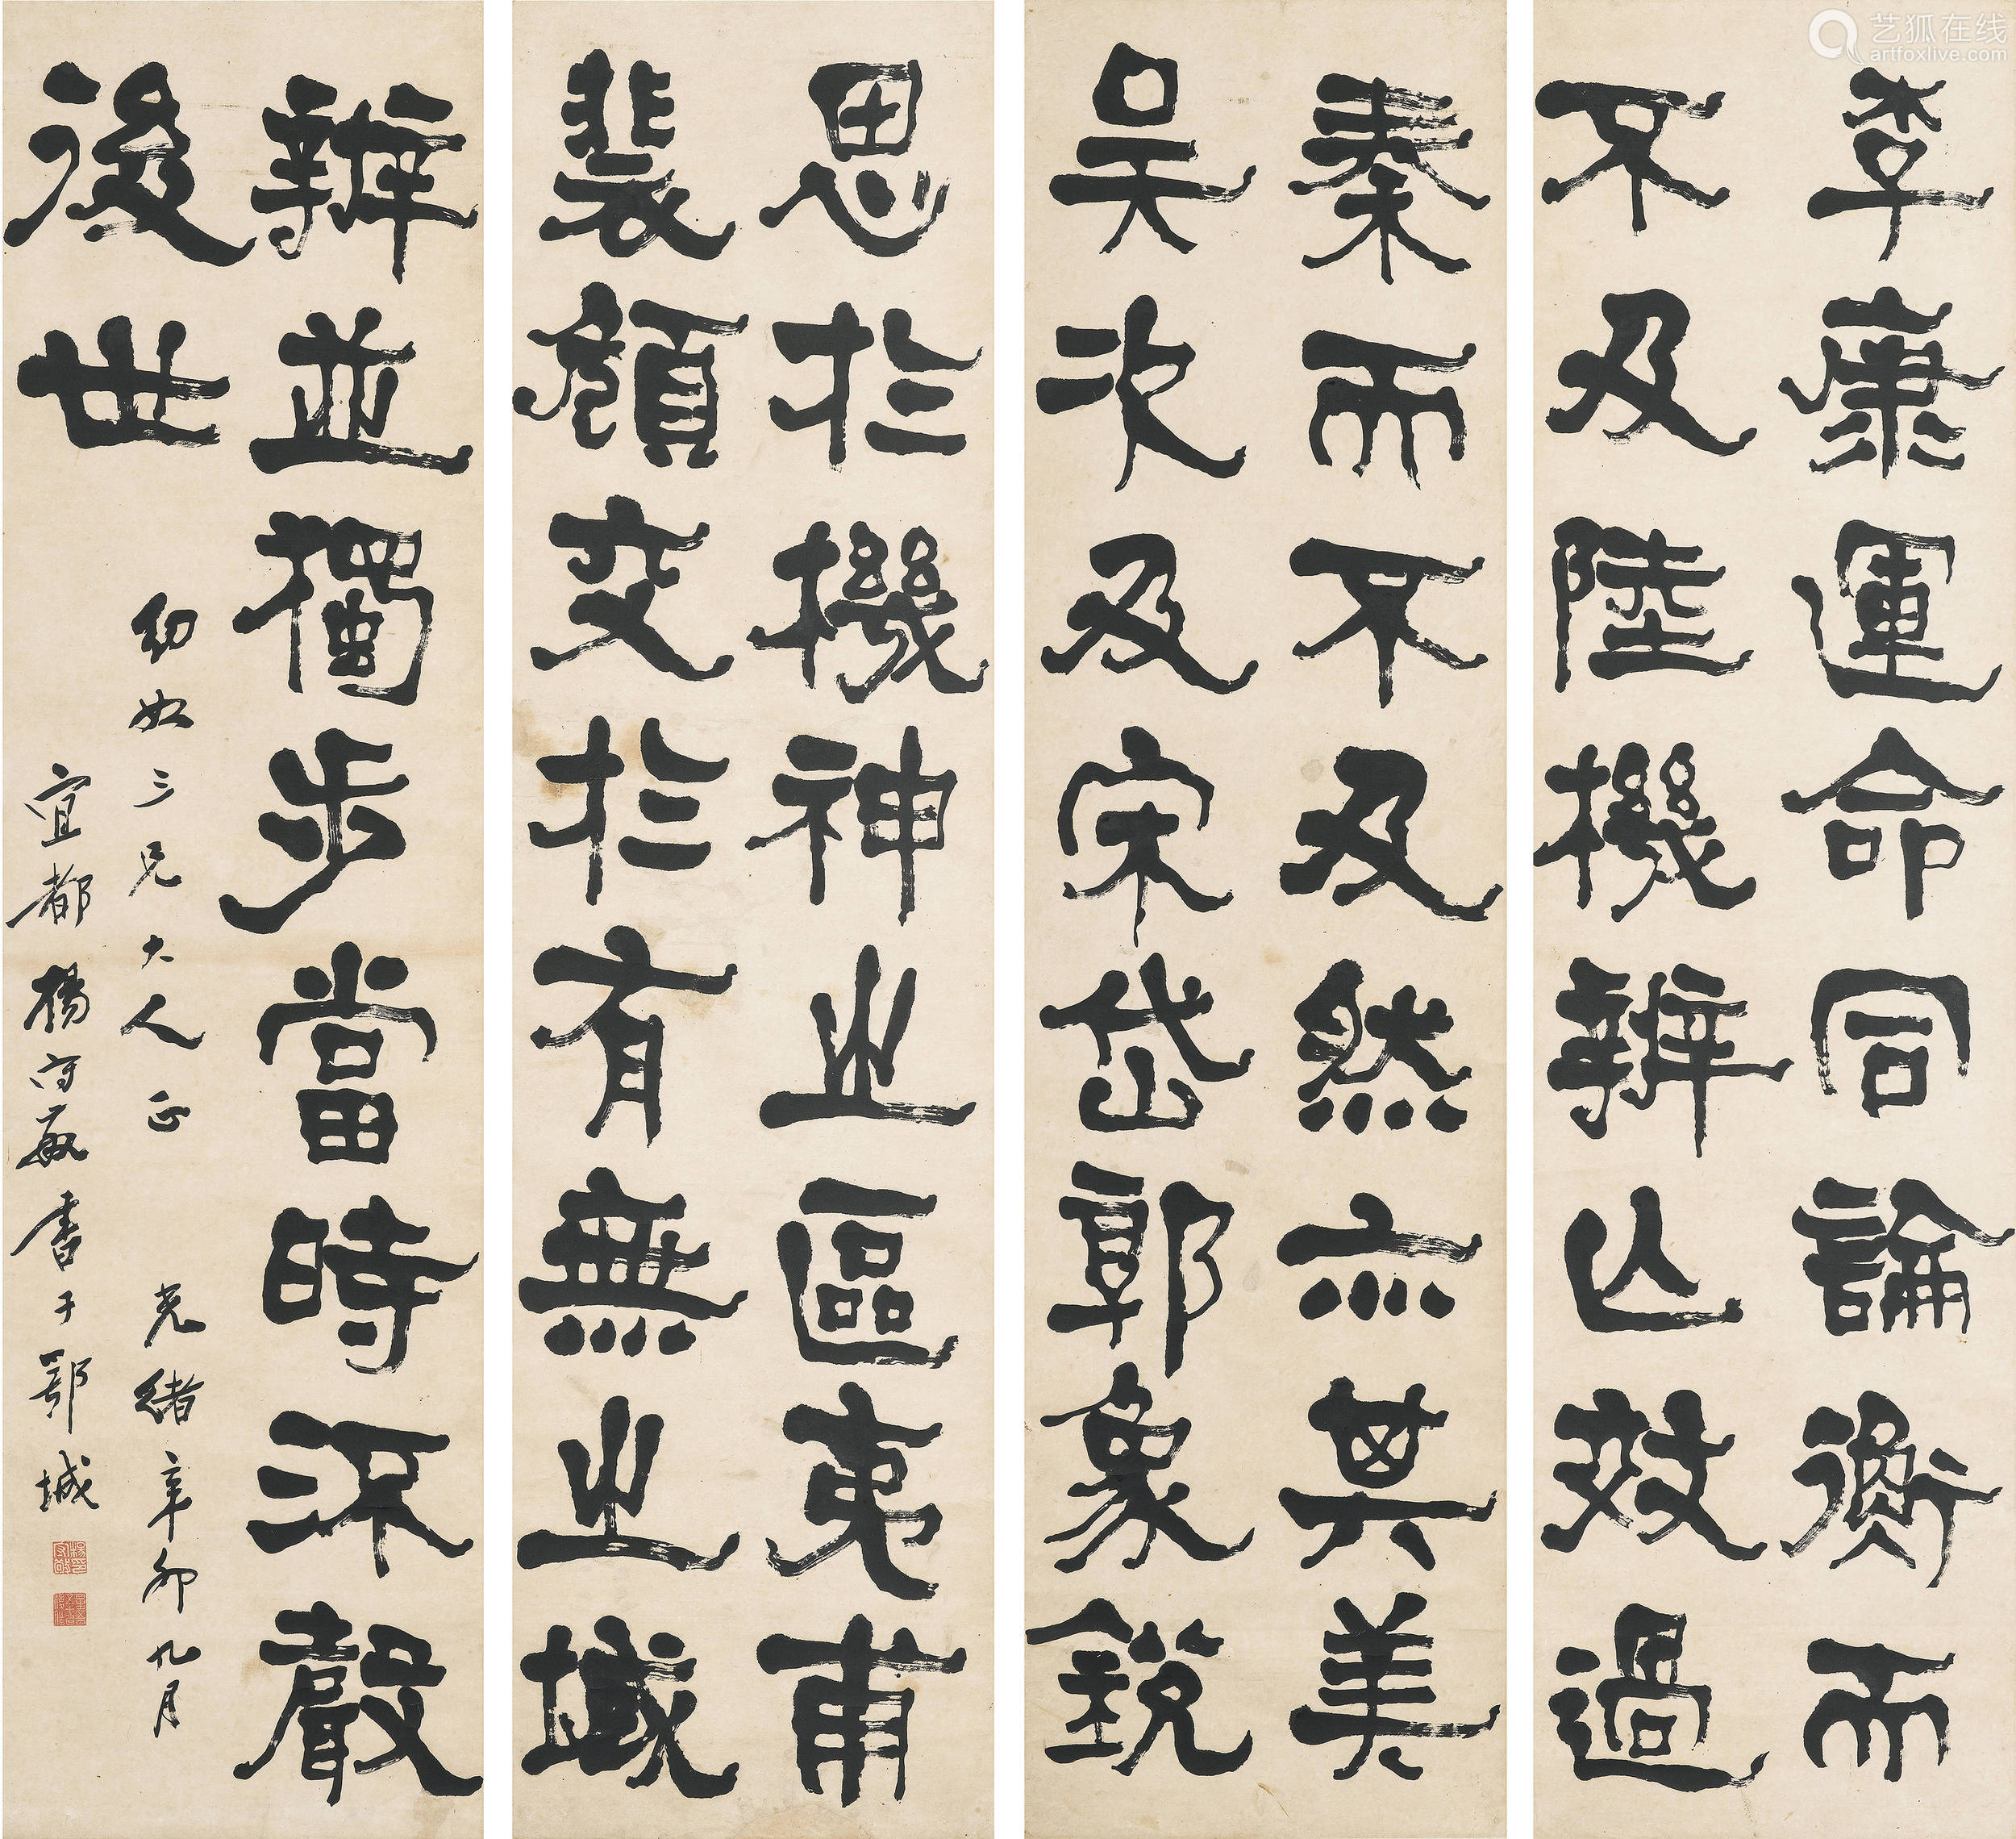 艺狐在线
artfoxlive.com
李康運命同論衡而
不及陸機辨亾效過
秦而不及然亦其美
矣次及宋岱郭象銳
思於機神之區夷甫
裴頠交於有無之域
辨並獨步當時流聲
後世
幼如三兄大人正 光緒辛卯九月
宜都楊守敬書于鄂城